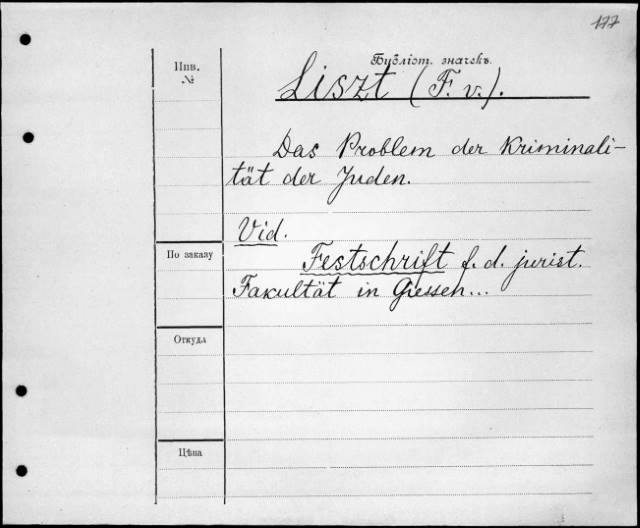 177
Инв.
№
Библіот. значекъ.
Liszt (F. v.).
Das Problem der Kriminali-
tät der Juden.
Vid.
По заказу
Festschrift f. d. jurist.
Fakultät in Giessen...
Откуда
Цѣна